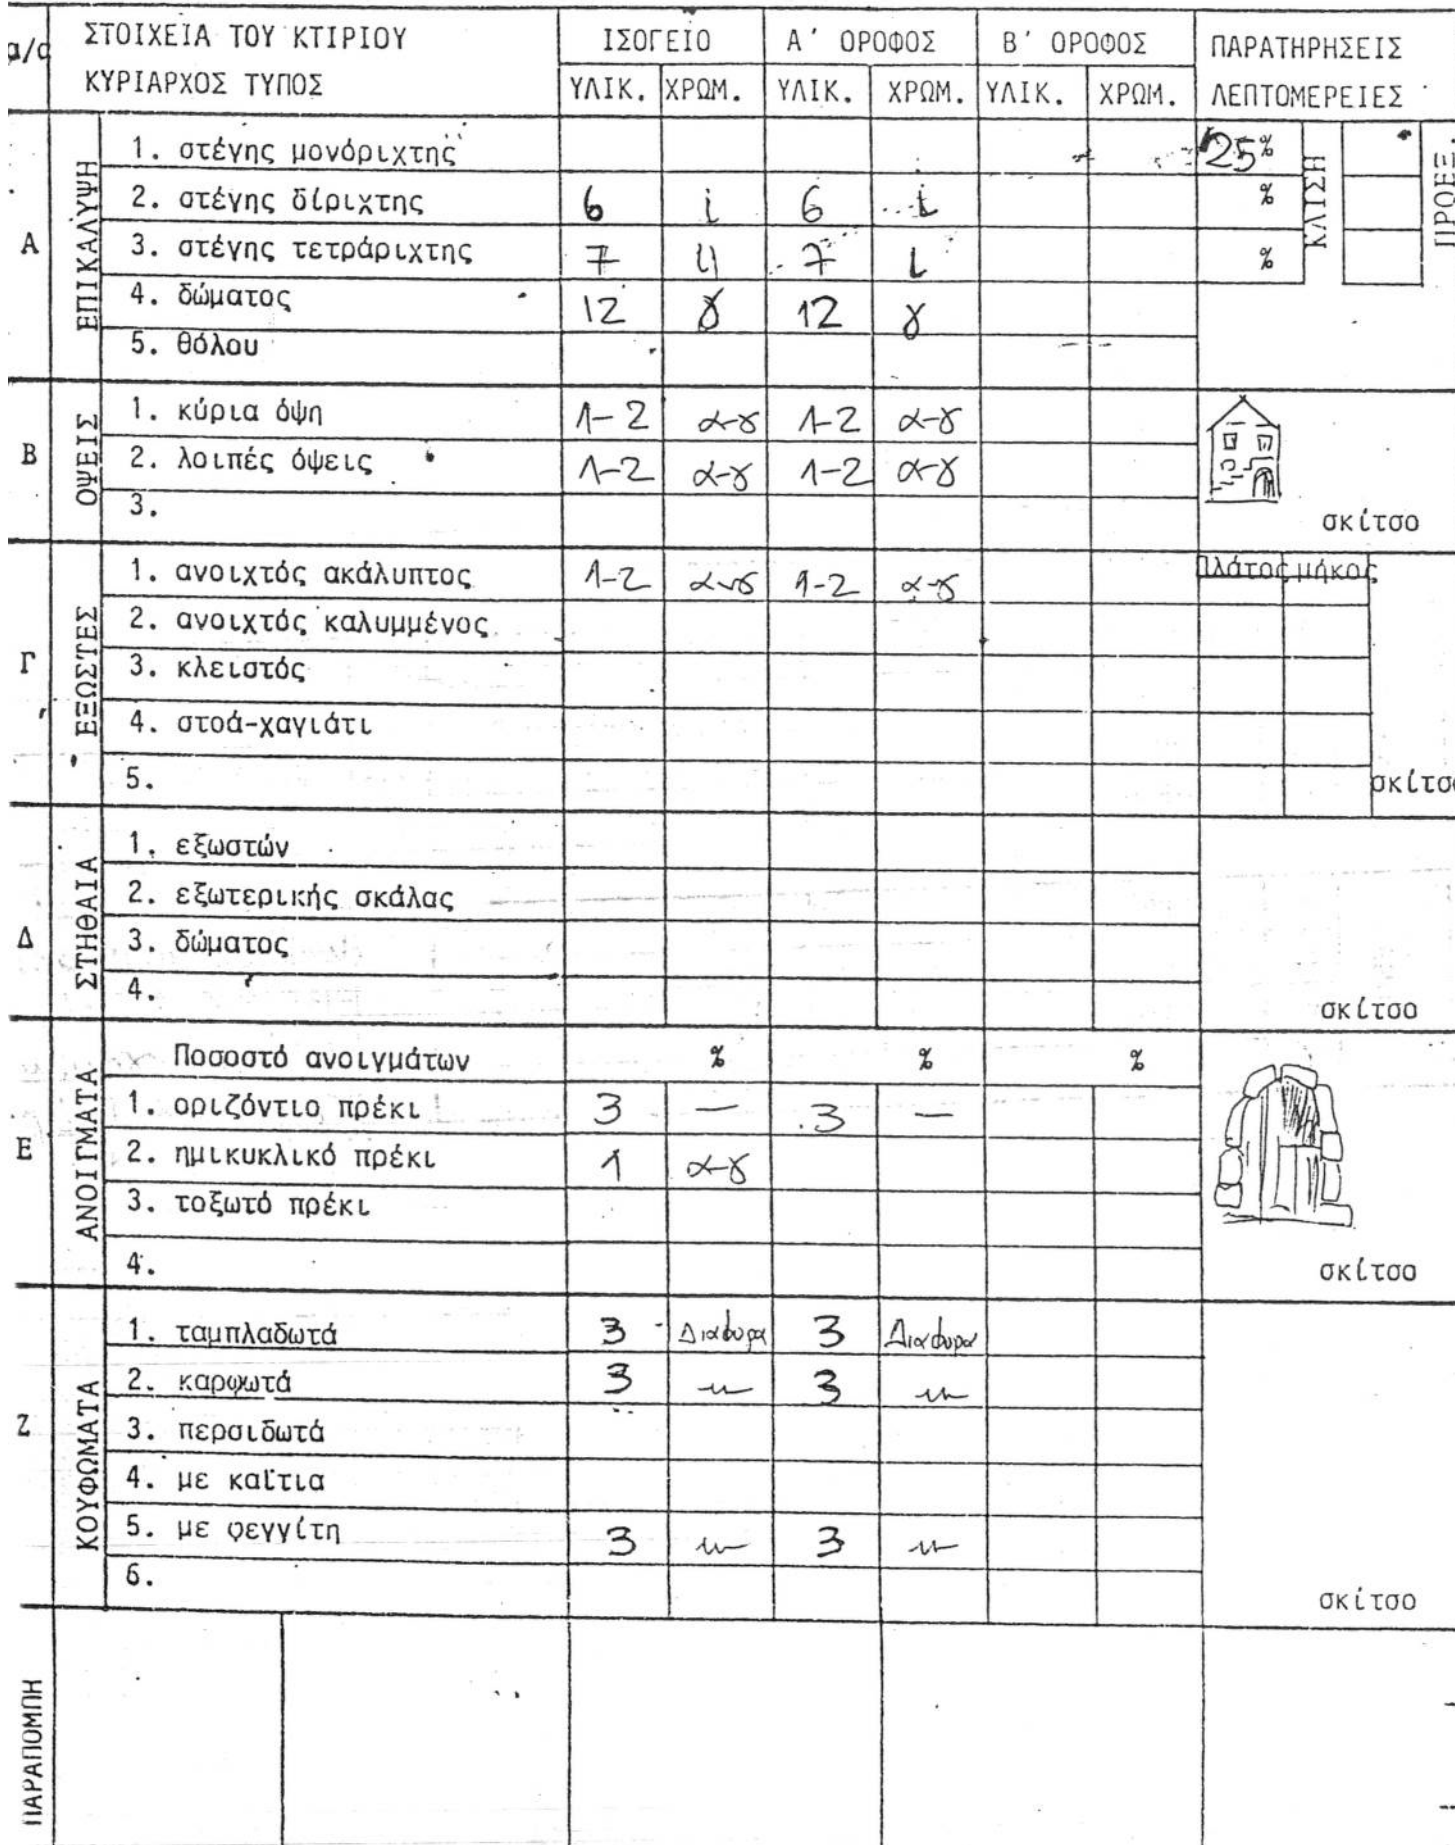 α/α ΣΤΟΙΧΕΙΑ ΤΟΥ ΚΤΙΡΙΟΥ ΙΣΟΓΕΙΟ Α' ΟΡΟΦΟΣ Β' ΟΡΟΦΟΣ ΠΑΡΑΤΗΡΗΣΕΙΣ
ΚΥΡΙΑΡΧΟΣ ΤΥΠΟΣ ΥΛΙΚ. ΧΡΩΜ. ΥΛΙΚ. ΧΡΩΜ. ΥΛΙΚ. ΧΡΩΜ. ΛΕΠΤΟΜΕΡΕΙΕΣ
Α ΕΠΙΚΑΛΥΨΗ
1. στέγης μονόριχτης 25% ΚΛΙΣΗ ΠΡΟΕΞ.
2. στέγης δίριχτης 6 i 6 i %
3. στέγης τετράριχτης 7 7 ι %
4. δώματος 12 γ 12 γ
5. θόλου
Β ΟΨΕΙΣ
1. κύρια όψη 1-2 α-γ 1-2 α-γ
2. λοιπές όψεις 1-2 α-γ 1-2 α-γ
3. σκίτσο
Γ ΕΞΩΣΤΕΣ
1. ανοιχτός ακάλυπτος 1-2 α-γ 1-2 α-γ πλάτος μήκος
2. ανοιχτός καλυμμένος
3. κλειστός
4. στοά-χαγιάτι
5. σκίτσο
Δ ΣΤΗΘΑΙΑ
1. εξωστών
2. εξωτερικής σκάλας
3. δώματος
4. σκίτσο
Ε ΑΝΟΙΓΜΑΤΑ
Ποσοστό ανοιγμάτων % % %
1. οριζόντιο πρέκι 3 — 3 —
2. ημικυκλικό πρέκι 1 α-γ
3. τοξωτό πρέκι
4. σκίτσο
Ζ ΚΟΥΦΩΜΑΤΑ
1. ταμπλαδωτά 3 Διάφορα 3 Διάφορα
2. καρφωτά 3 -〃- 3 -〃-
3. περσιδωτά
4. με καΐτια
5. με φεγγίτη 3 -〃- 3 -〃-
6. σκίτσο
ΠΑΡΑΠΟΜΠΗ